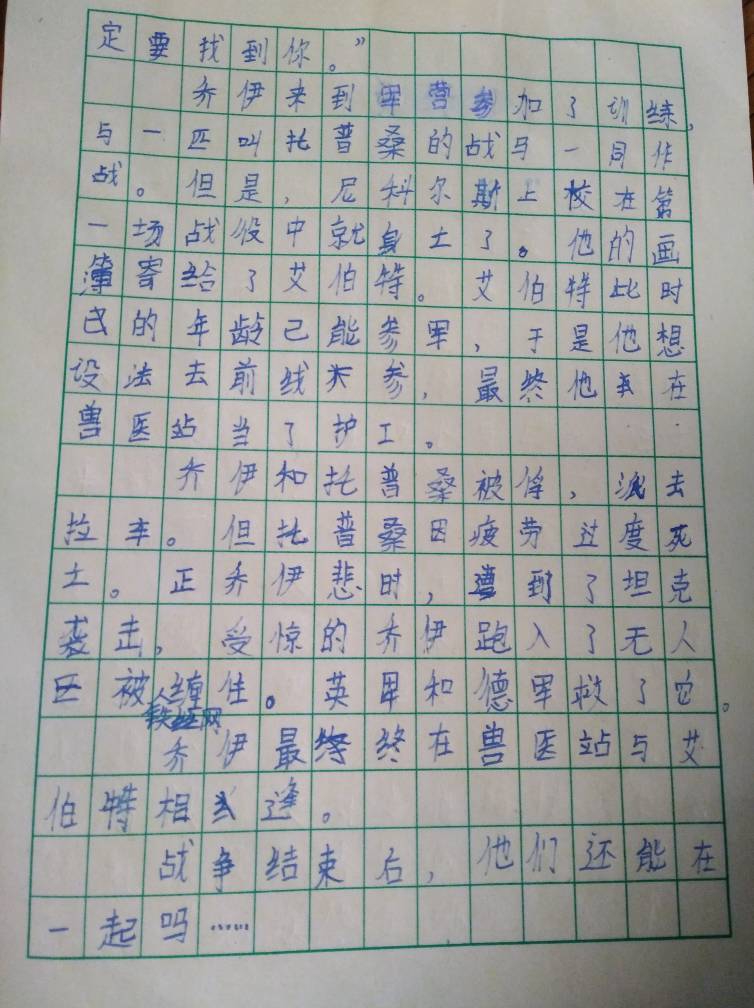 定要找到你。”
乔伊来到军营参加了训练,
与一匹叫托普桑的战马一同作
战。但是,尼科尔斯上校在第
一场战役中就身亡了。他的画
簿寄给了艾伯特。艾伯特此时
的年龄已能参军,于是他想
设法去前线参,最终他在
兽医站当了护工。
乔伊和托普桑被俘,派去
拉车。但托普桑因疲劳过度死
亡。正乔伊悲时,遭到了坦克
袭击,受惊的乔伊跑入了无人
区被铁丝网缠住。英军和德军救了它。
乔伊最终在兽医站与艾
伯特相逢。
战争结束后,他们还能在
一起吗……